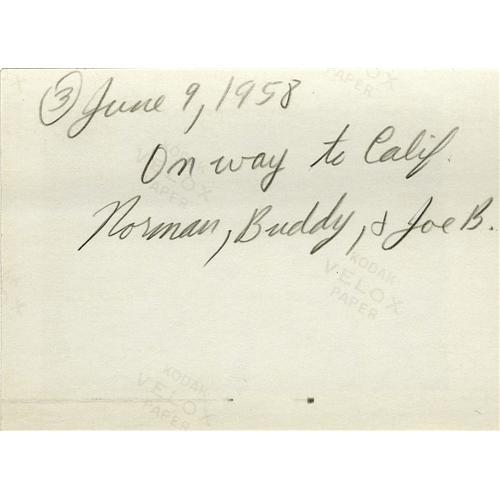 ③ June 9, 1958
On way to Calif.
Norman, Buddy, & Joe B.
KODAK
VELOX
PAPER
KODAK
VELOX
PAPER
KODAK
VELOX
PAPER
VELOX
PAPER